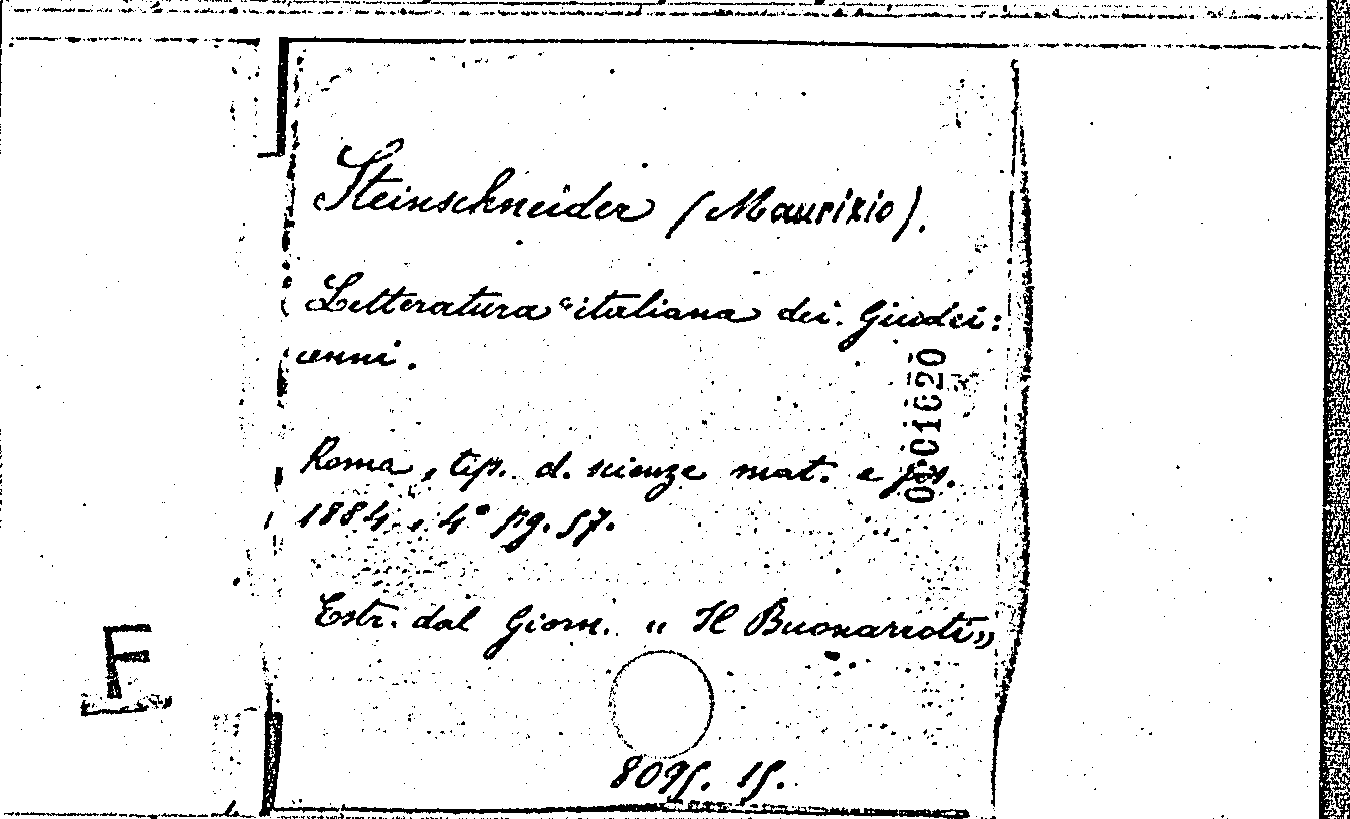 Steinschneider (Maurizio).
Letteratura italiana dei Giudei:
enni.
Roma, tip. d. scienze mat. e fis.
1884, 4° pg. 57.
Estr. dal Giorn. "Il Buonarroti"
8095. 15.
F